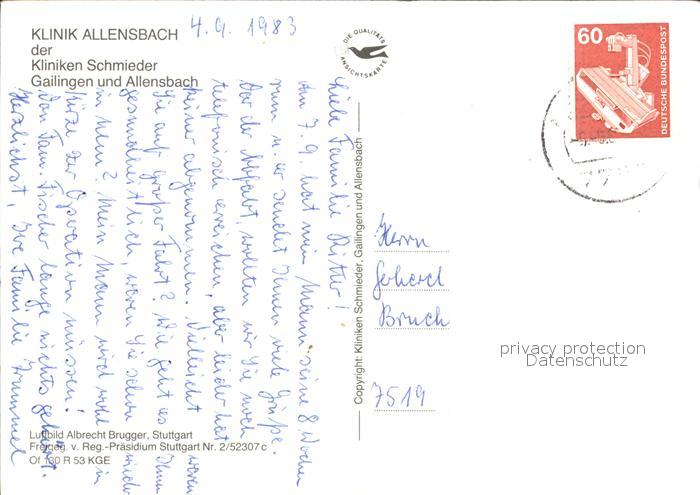 KLINIK ALLENSBACH
der
Kliniken Schmieder
Gailingen und Allensbach
4.9.1983
DIE QUALITÄTS
ANSICHTSKARTE
60
DEUTSCHE BUNDESPOST
Liebe Familie Ritter!
Am 7.9. hat mein Mann seine 8 Wochen
rum u. er sendet Ihnen viele Grüße.
Vor der Abfahrt wollten wir Sie noch
telefonisch erreichen, aber leider hat
keiner abgenommen. Vielleicht waren
Sie auf großer Fahrt? Wie geht es Ihnen
gesundheitlich, waren Sie schon wieder
in Ulm? Mein Mann wird wohl in
Kürze zur Operation müssen!
Von Fam. Fischer lange nichts gehört.
Herzlichst, Ihre Familie
Copyright: Kliniken Schmieder, Gailingen und Allensbach
Herrn
Gebhard
Bruch
7519
privacy protection
Datenschutz
Luftbild Albrecht Brugger, Stuttgart
Freigeg. v. Reg.-Präsidium Stuttgart Nr. 2/52307 c
Of 130 R 53 KGE